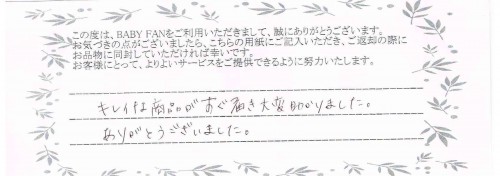 この度は、BABY FANをご利用いただきまして、誠にありがとうございます。
お気づきの点がございましたら、こちらの用紙にご記入いただき、ご返却の際に
お品物に同封していただければ幸いです。
お客様にとって、よりよいサービスをご提供できるように努力いたします。
キレイな商品がすぐ届き大変助かりました。
ありがとうございました。